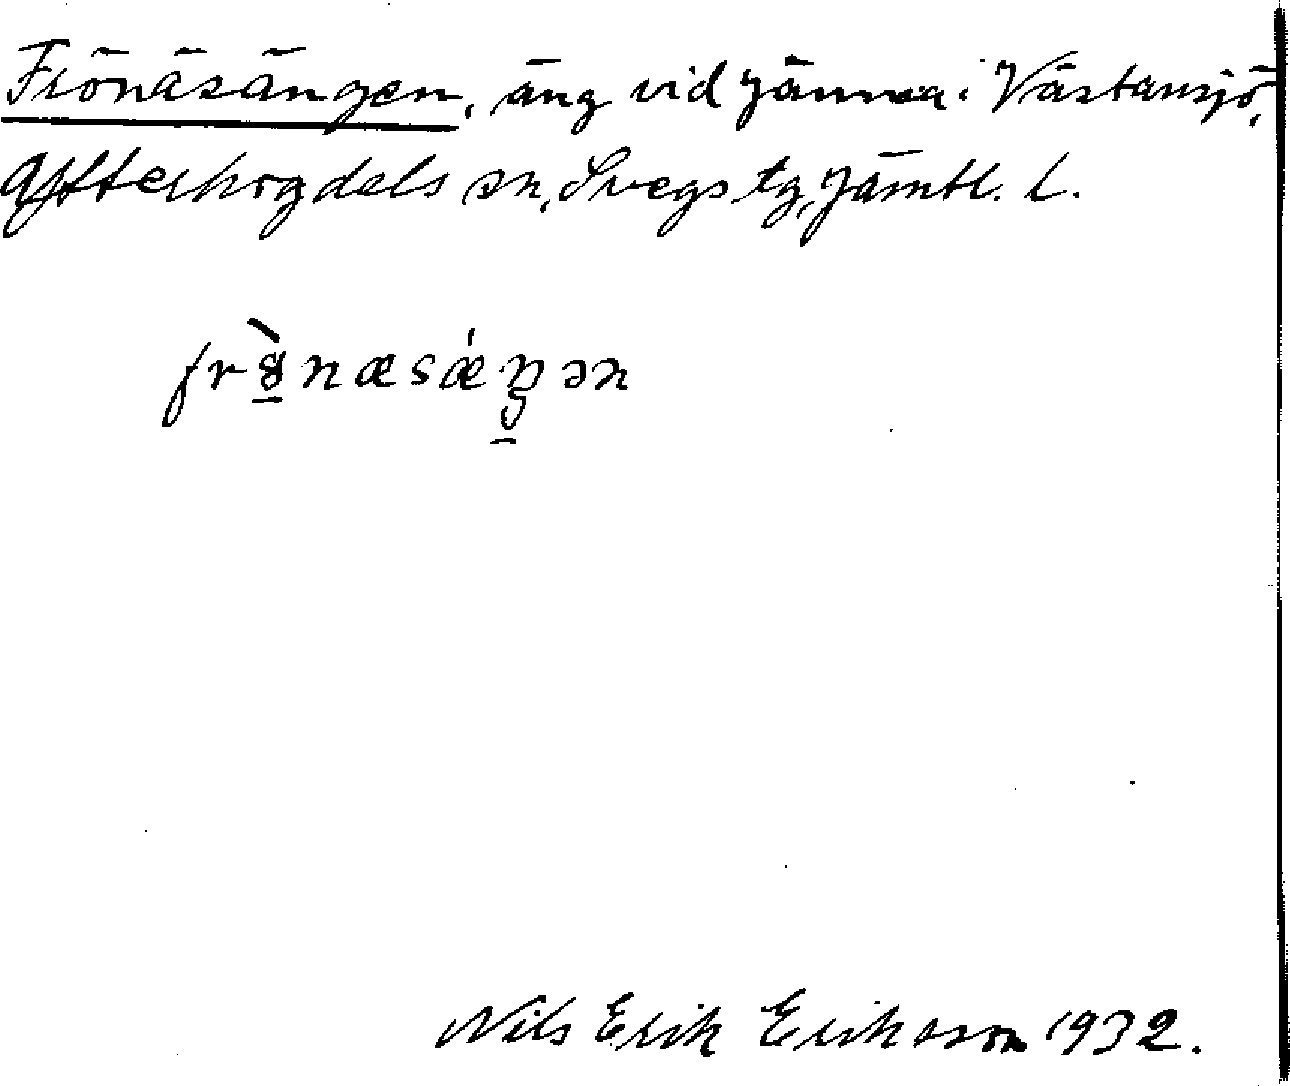 Frönäsängen, äng vid Jänna i Västansjö,
Ytterhogdals sn, Svegs tg, Jämtl. L.
Nils Erik Eriksson 1932.